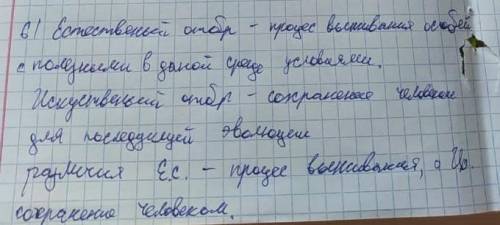 6) Естественый отбр - процес выживания особей
с полезными в даной среде условиями.
Искуственый отбр - сохранение человеком
для последующей эволюцеи
различия Е.С. - процес выживания, а Ио.
сохранение человеком.